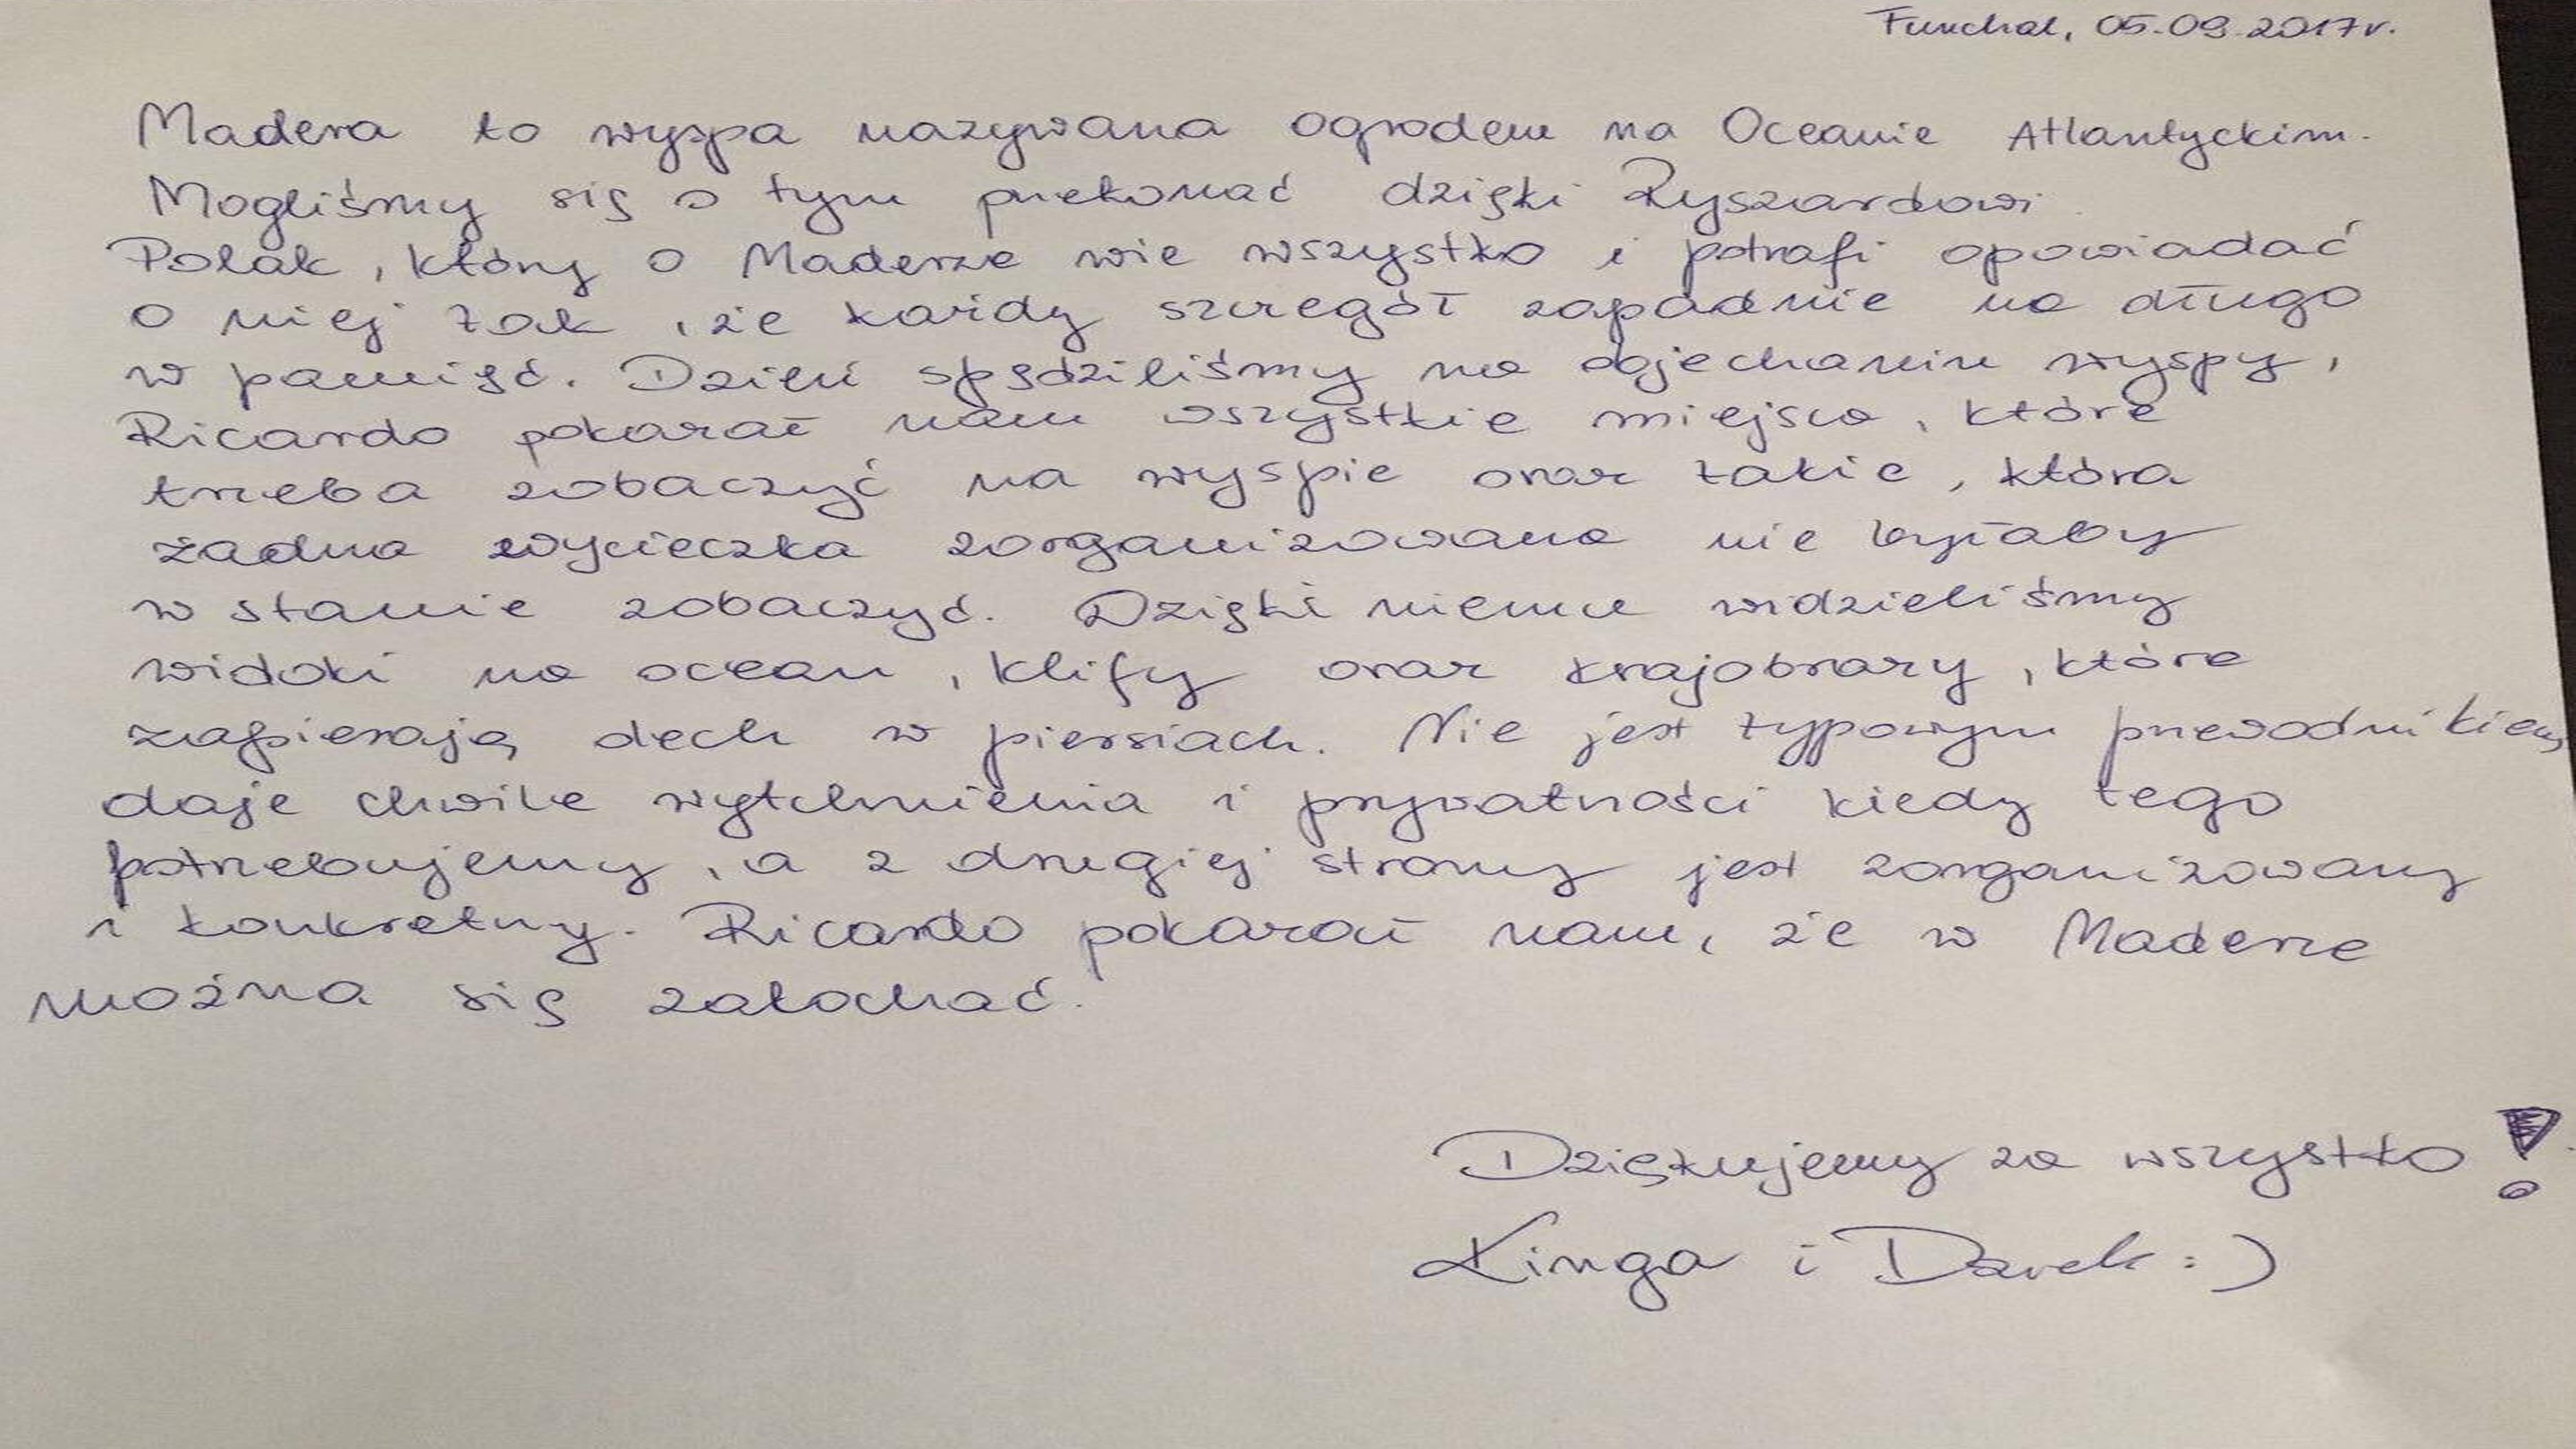 Funchal, 05.09.2017r.
Madera to wyspa nazywana ogrodem na Oceanie Atlantyckim.
Mogliśmy się o tym przekonać dzięki Ryszardowi.
Polak, który o Maderze wie wszystko i potrafi opowiadać
o niej tak, że każdy szczegół zapadnie na długo
w pamięć. Dzień spędziliśmy na objechaniu wyspy,
Ricardo pokazał nam wszystkie miejsca, które
trzeba zobaczyć na wyspie oraz takie, która
żadna wycieczka zorganizowana nie byłaby
w stanie zobaczyć. Dzięki niemu widzieliśmy
widoki na ocean, klify oraz krajobrazy, które
zapierają dech w piersiach. Nie jest typowym przewodnikiem,
daje chwile wytchnienia i prywatności kiedy tego
potrzebujemy, a z drugiej strony jest zorganizowany
i konkretny. Ricardo pokazał nam, że w Maderze
można się zakochać.
Dziękujemy za wszystko!
Kinga i Darek :)